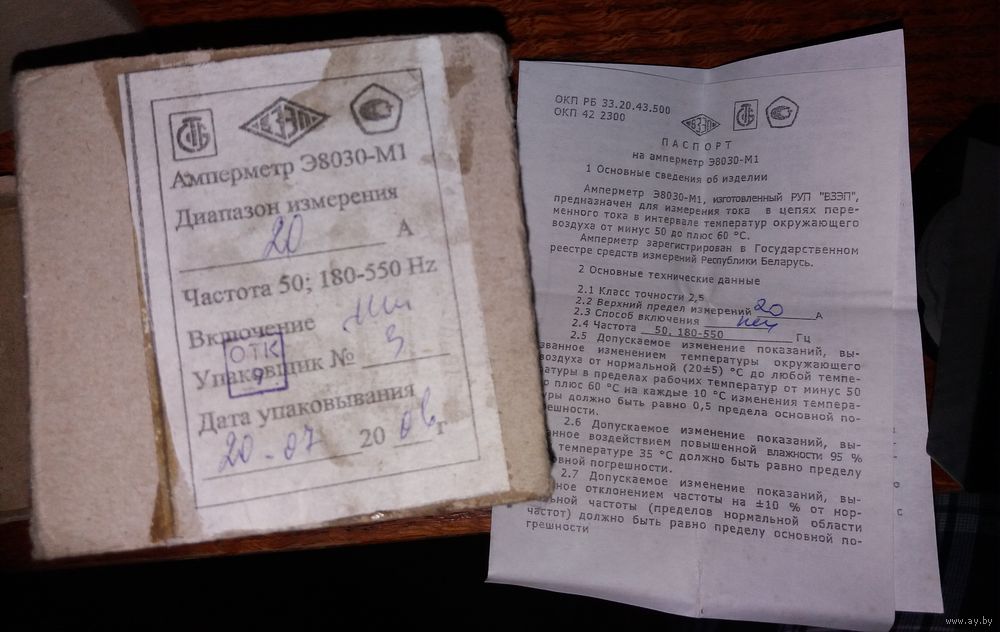 СТБ
ВЗЭП
Амперметр Э8030-М1
Диапазон измерения
20 А
Частота 50; 180-550 Hz
Включение
ОТК
9
Упаковщик № 3
Дата упаковывания
20-07 2006 г
ОКП РБ 33.20.43.500
ОКП 42 2300
ВЗЭП СТБ
ПАСПОРТ
на амперметр Э8030-М1
1 Основные сведения об изделии
Амперметр Э8030-М1, изготовленный РУП "ВЗЭП",
предназначен для измерения тока в цепях пере-
менного тока в интервале температур окружающего
воздуха от минус 50 до плюс 60 °С.
Амперметр зарегистрирован в Государственном
реестре средств измерений Республики Беларусь.
2 Основные технические данные
2.1 Класс точности 2,5
2.2 Верхний предел измерений 20 А
2.3 Способ включения
2.4 Частота 50, 180-550 Гц
2.5 Допускаемое изменение показаний, вы-
званное изменением температуры окружающего
воздуха от нормальной (20±5) °С до любой темпе-
ратуры в пределах рабочих температур от минус 50
до плюс 60 °С на каждые 10 °С изменения темпера-
туры должно быть равно 0,5 предела основной по-
грешности.
2.6 Допускаемое изменение показаний, вы-
званное воздействием повышенной влажности 95 %
температуре 35 °С должно быть равно пределу
основной погрешности.
2.7 Допускаемое изменение показаний, вы-
званное отклонением частоты на ±10 % от нор-
мальной частоты (пределов нормальной области
частот) должно быть равно пределу основной по-
грешности
www.ay.by